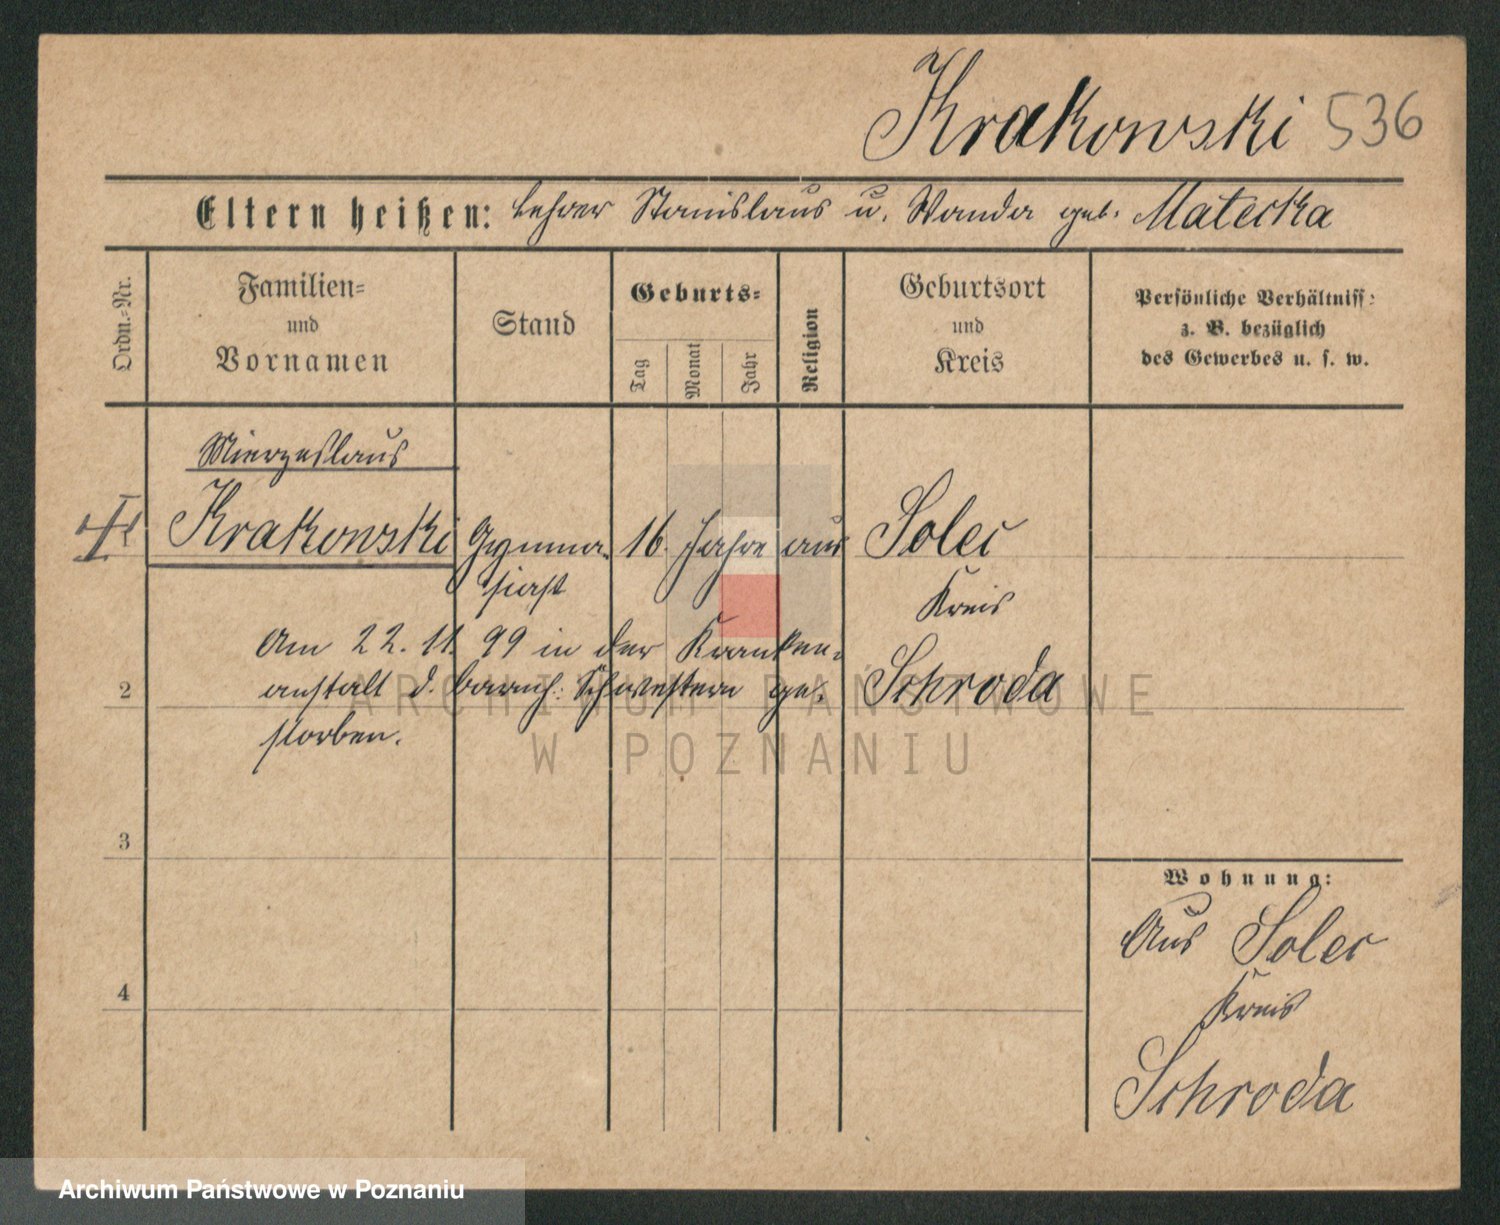 Krakowski 536
Eltern heißen: Lehrer Stanislaus u. Wanda geb. Matecka
Ordn.=Nr.
Familien=
und
Vornamen
Stand
Geburts=
Tag
Monat
Jahr
Religion
Geburtsort
und
Kreis
Persönliche Verhältniss:
z. B. bezüglich
des Gewerbes u. s. w.
Mieczeslaus
Krakowski Gymna- 16 Jahre aus Solec
siast
Kreis
Am 22. 11. 99 in der Kranken-
2 anstalt d. barmh: Schwestern ge- Schroda
storben.
3
4
Wohnung:
Aus Solec
Kreis
Schroda
ARCHIWUM PAŃSTWOWE
W POZNANIU
Archiwum Państwowe w Poznaniu